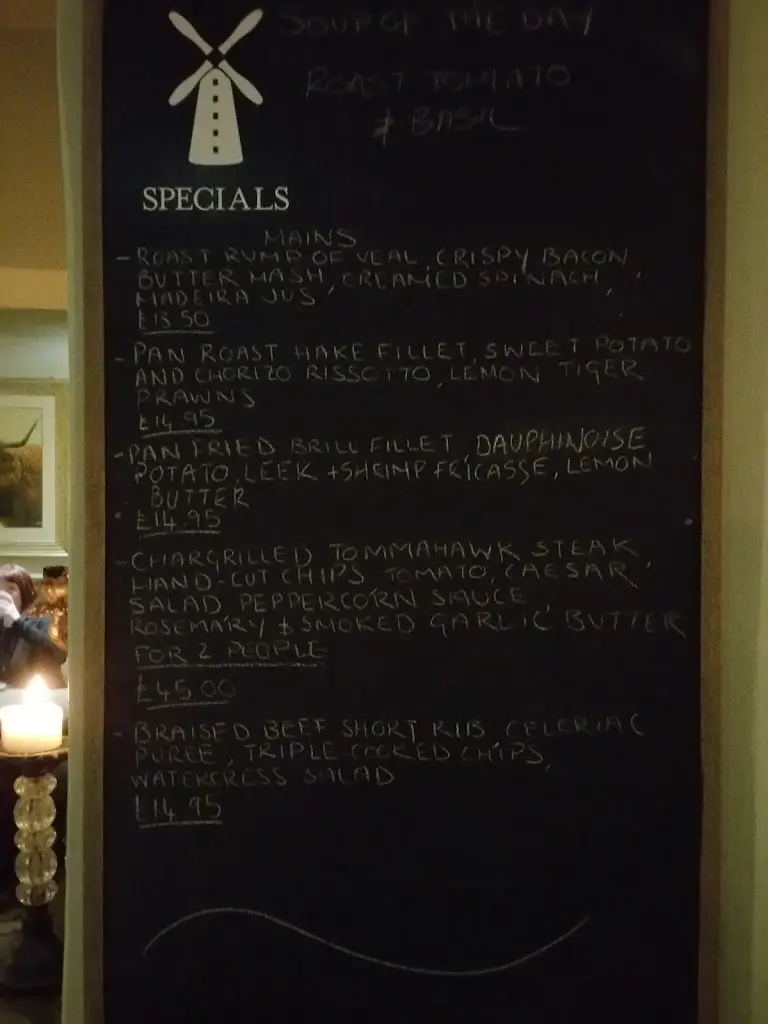 SOUP OF THE DAY
ROAST TOMATO
& BASIL
SPECIALS
MAINS
- ROAST RUMP OF VEAL, CRISPY BACON,
BUTTER MASH, CREAMED SPINACH,
MADEIRA JUS
£18.50
- PAN ROAST HAKE FILLET, SWEET POTATO
AND CHORIZO RISSOTTO, LEMON TIGER
PRAWNS
£14.95
- PAN FRIED BRILL FILLET, DAUPHINOISE
POTATO, LEEK + SHRIMP FRICASSE, LEMON
BUTTER
£14.95
- CHARGRILLED TOMMAHAWK STEAK,
HAND-CUT CHIPS TOMATO, CAESAR
SALAD, PEPPERCORN SAUCE,
ROSEMARY & SMOKED GARLIC BUTTER
FOR 2 PEOPLE
£45.00
- BRAISED BEEF SHORT RIB, CELERIAC
PUREE, TRIPLE COOKED CHIPS,
WATERCRESS SALAD
£14.95